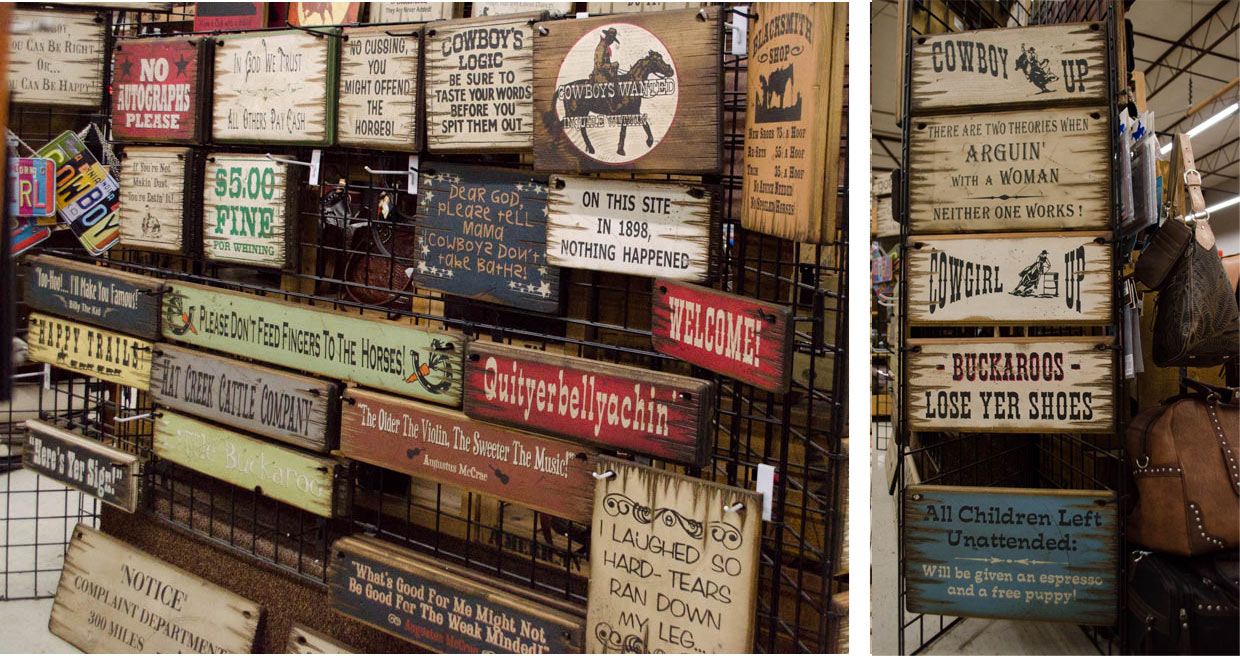 You Can Be Right
Or...
You Can Be Happy
NO
AUTOGRAPHS
PLEASE
IN GOD WE TRUST
ALL OTHERS PAY CASH
NO CUSSING,
YOU
MIGHT OFFEND
THE
HORSES!
COWBOY'S
LOGIC
BE SURE TO
TASTE YOUR WORDS
BEFORE YOU
SPIT THEM OUT
COWBOYS WANTED
BLACKSMITH
SHOP
If You're Not
Makin' Dust,
You're Eatin' It!
$5.00
FINE
FOR WHINING
DEAR GOD,
please tell
MAMA
COWBOYS DON'T
take BATHS!
ON THIS SITE
IN 1898,
NOTHING HAPPENED
COWBOY
"Yoo-Hoo!... I'll Make You Famous!"
Billy The Kid
PLEASE DON'T FEED FINGERS TO THE HORSES!
WELCOME!
HAPPY TRAILS!
HAT CREEK CATTLE COMPANY
Quityerbellyachin'
"The Older The Violin, The Sweeter The Music!"
Augustus McCrae
"Here's Yer Sign!"
Little Buckaroo
I LAUGHED SO
HARD- TEARS
RAN DOWN
MY LEG...
'NOTICE'
COMPLAINT DEPARTMENT
300 MILES
"What's Good For Me Might Not
Be Good For The Weak Minded!"
Augustus McCrae
COWBOY UP
THERE ARE TWO THEORIES WHEN
ARGUIN'
WITH A WOMAN
NEITHER ONE WORKS!
COWGIRL UP
- BUCKAROOS -
LOSE YER SHOES
All Children Left
Unattended:
Will be given an espresso
and a free puppy!